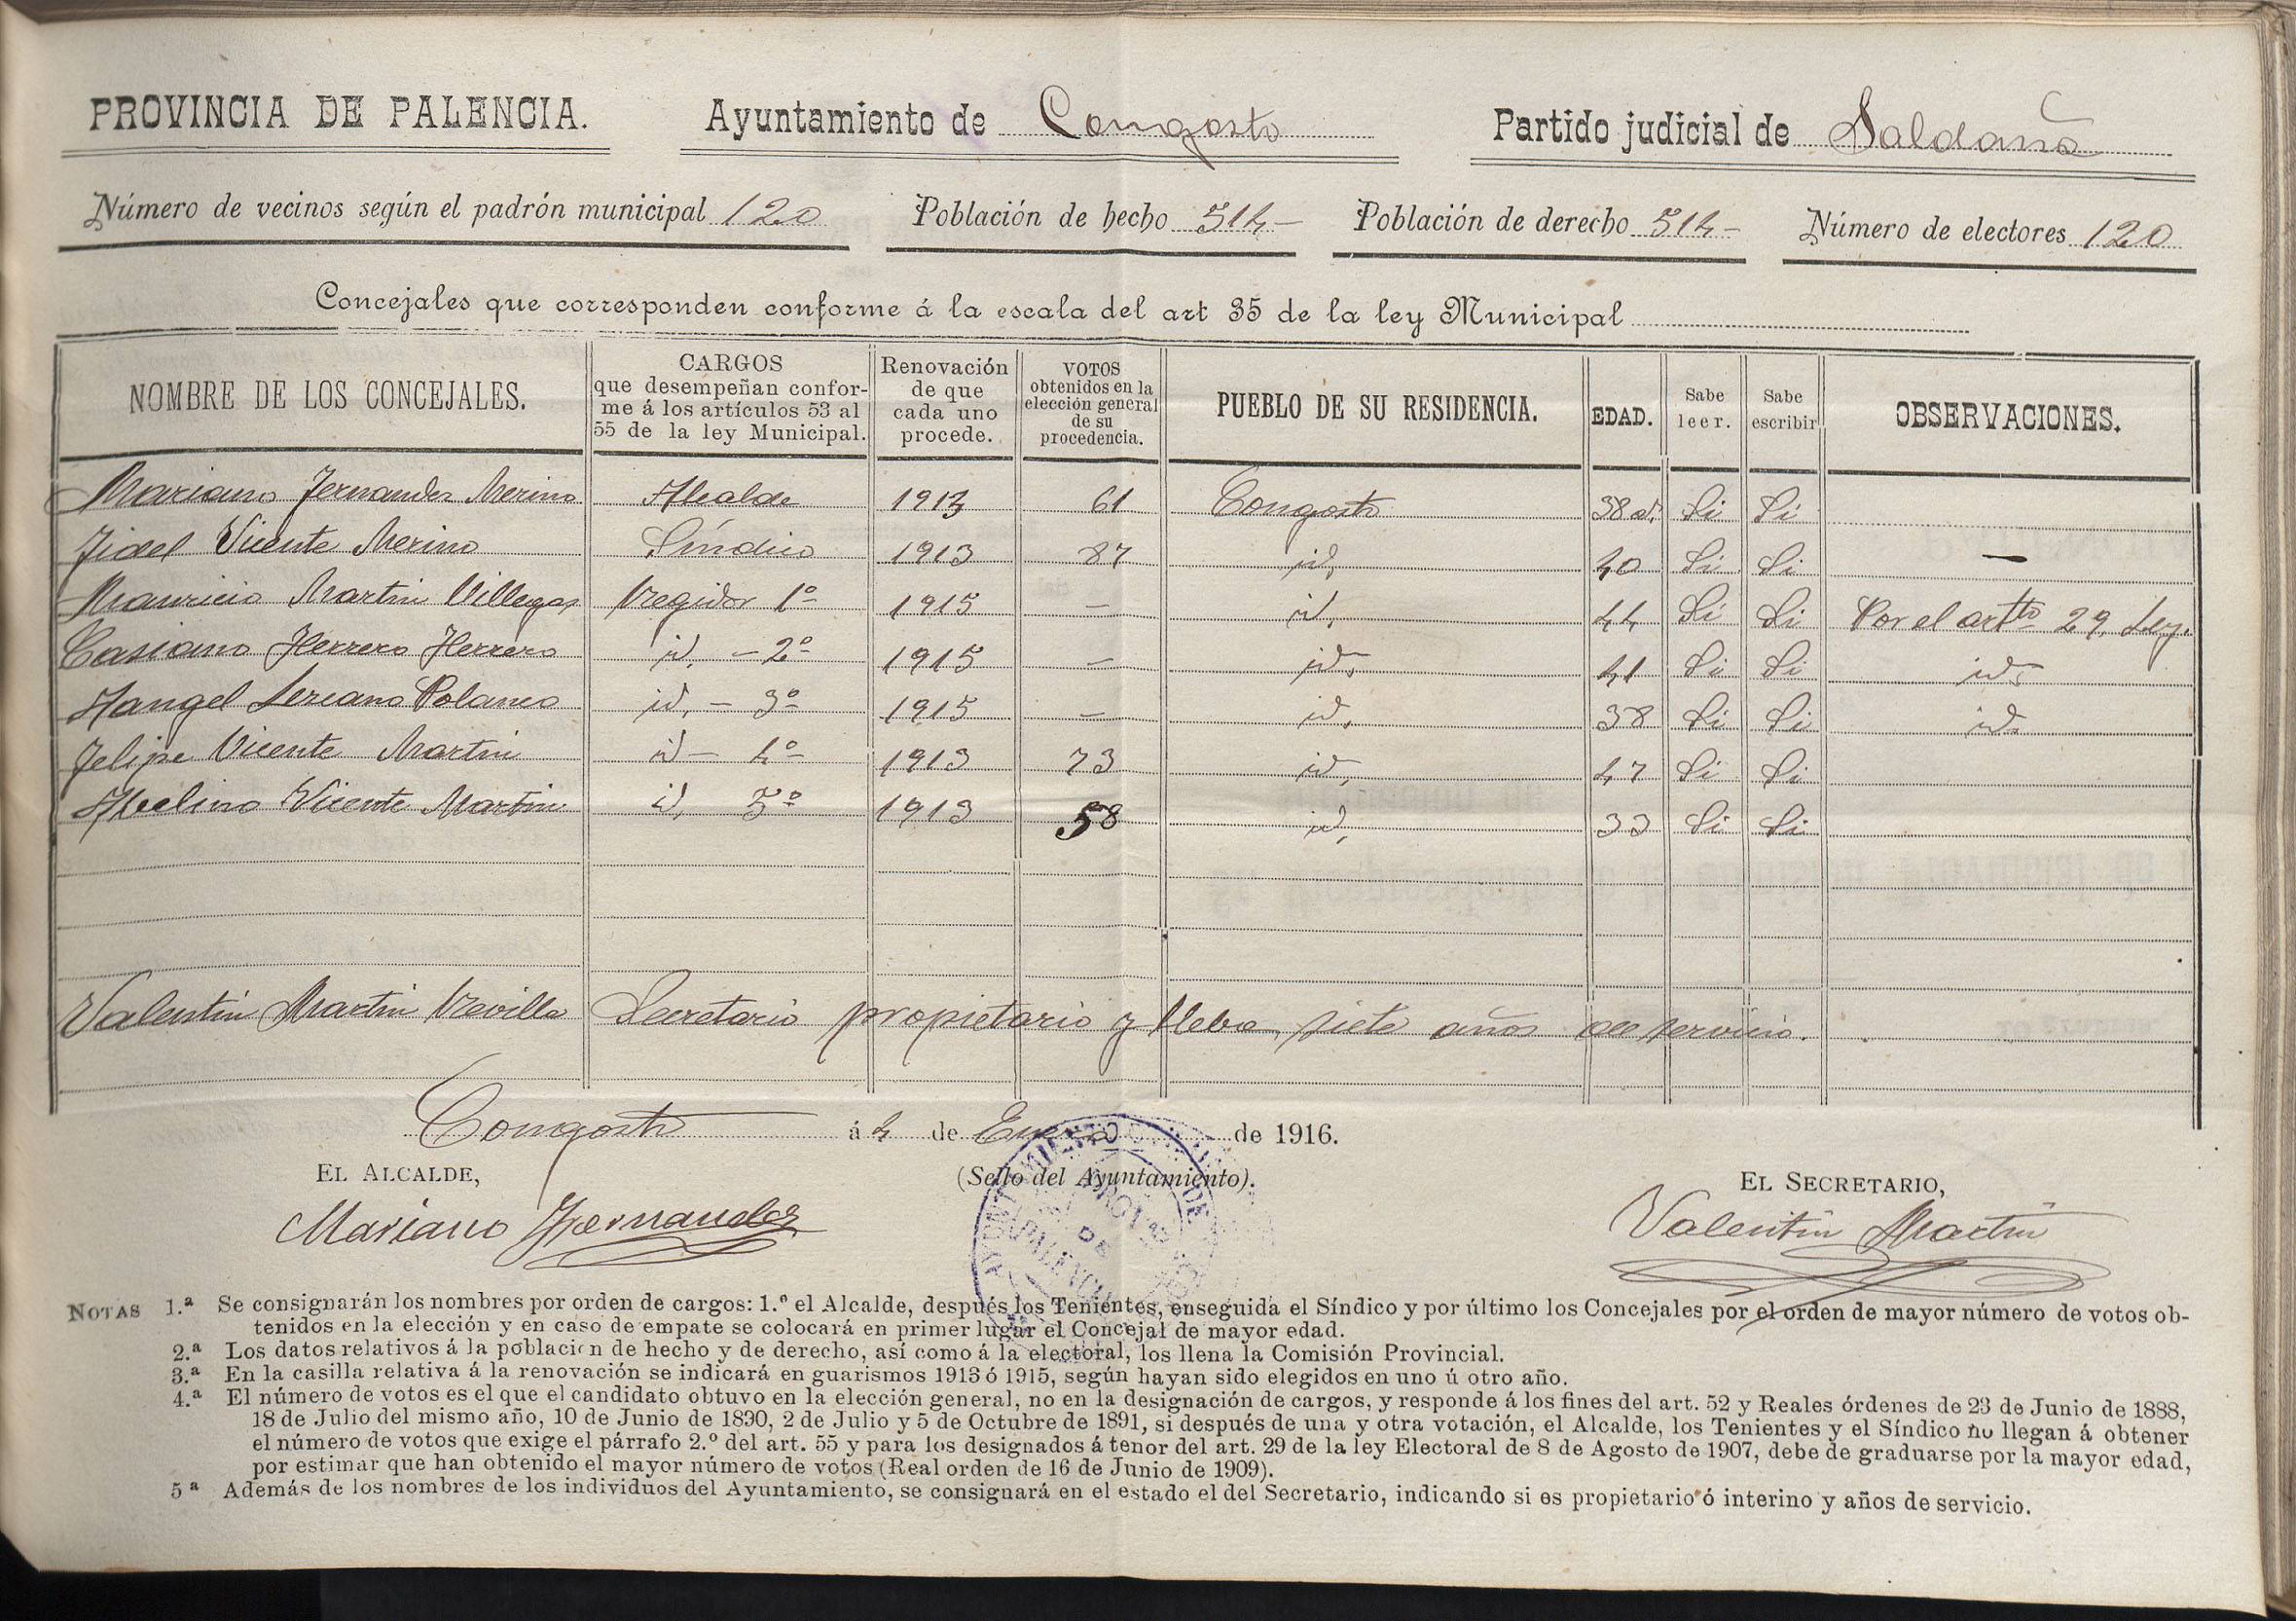 PROVINCIA DE PALENCIA. Ayuntamiento de Congosto Partido judicial de Saldaña
Número de vecinos según el padrón municipal 120 Población de hecho 514 Población de derecho 514 Número de electores 120
Concejales que corresponden conforme á la escala del art 35 de la ley Municipal
NOMBRE DE LOS CONCEJALES. CARGOS que desempeñan conforme á los artículos 53 al 55 de la ley Municipal. Renovación de que cada uno procede. VOTOS obtenidos en la elección general de su procedencia. PUEBLO DE SU RESIDENCIA. EDAD. Sabe leer. Sabe escribir OBSERVACIONES.
Mariano Fernandez Merino Alcalde 1913 61 Congosto 38 a. Si Si
Fidel Vicente Merino Síndico 1913 87 id, 40 Si Si —
Mauricio Martin Villegas Regidor 1º 1915 — id, 44 Si Si Por el artto 29, Ley.
Casiano Herrero Herrero id. — 2º 1915 — id, 41 Si Si id,
Hangel Lezcano Polanco id, — 3º 1915 — id, 38 Si Si id.
Felipe Vicente Martin id — 4º 1913 73 id, 47 Si Si
Avelino Vicente Martin id, 5º 1913 58 id, 33 Si Si
Valentin Martin Revilla Secretario propietario y lleba, siete años de servicio.
Congosto á 4 de Enero de 1916.
EL ALCALDE, (Sello del Ayuntamiento). EL SECRETARIO,
Mariano Fernandez Valentin Martin
NOTAS 1.ª Se consignarán los nombres por orden de cargos: 1.º el Alcalde, después los Tenientes, enseguida el Síndico y por último los Concejales por el orden de mayor número de votos ob-
tenidos en la elección y en caso de empate se colocará en primer lugar el Concejal de mayor edad.
2.ª Los datos relativos á la población de hecho y de derecho, así como á la electoral, los llena la Comisión Provincial.
3.ª En la casilla relativa á la renovación se indicará en guarismos 1913 ó 1915, según hayan sido elegidos en uno ú otro año.
4.ª El número de votos es el que el candidato obtuvo en la elección general, no en la designación de cargos, y responde á los fines del art. 52 y Reales órdenes de 23 de Junio de 1888,
18 de Julio del mismo año, 10 de Junio de 1890, 2 de Julio y 5 de Octubre de 1891, si después de una y otra votación, el Alcalde, los Tenientes y el Síndico no llegan á obtener
el número de votos que exige el párrafo 2.º del art. 55 y para los designados á tenor del art. 29 de la ley Electoral de 8 de Agosto de 1907, debe de graduarse por la mayor edad,
por estimar que han obtenido el mayor número de votos (Real orden de 16 de Junio de 1909).
5ª Además de los nombres de los individuos del Ayuntamiento, se consignará en el estado el del Secretario, indicando si es propietario ó interino y años de servicio.